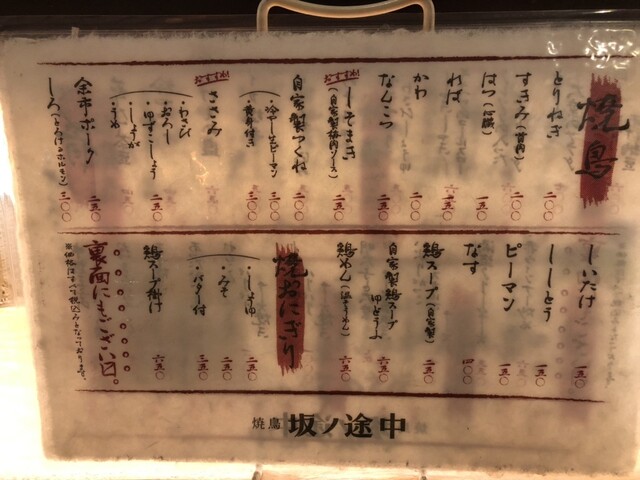 焼鳥
とりねぎ 二〇〇
すきみ(首肉) 二〇〇
はつ(心臓) 一五〇
ればー
かわ 二〇〇
なんこつ 二〇〇
おすすめ!
しそまき(自家製梅肉ソース) 二五〇
自家製つくね
・冷やしピーマン 三〇〇
・黄身付き 三〇〇
おすすめ!
ささみ
・わさび
・おろし
・ゆずこしょう
・しょうが
・うめ
二五〇
余市ポーク 二五〇
しろ(とろけるホルモン) 三〇〇
しいたけ 二五〇
ししとう 一五〇
ピーマン 一五〇
なす 四〇〇
鶏スープ(自家製) 二五〇
自家製鶏スープ
ゆどうふ 六五〇
鶏めん(温そうめん) 六五〇
焼おにぎり
・しょうゆ 二五〇
・みそ 二五〇
・バター付 三五〇
鶏スープ掛け 六五〇
裏面にもござい〼。
※価格はすべて税込みとなっております。
焼鳥 坂ノ途中